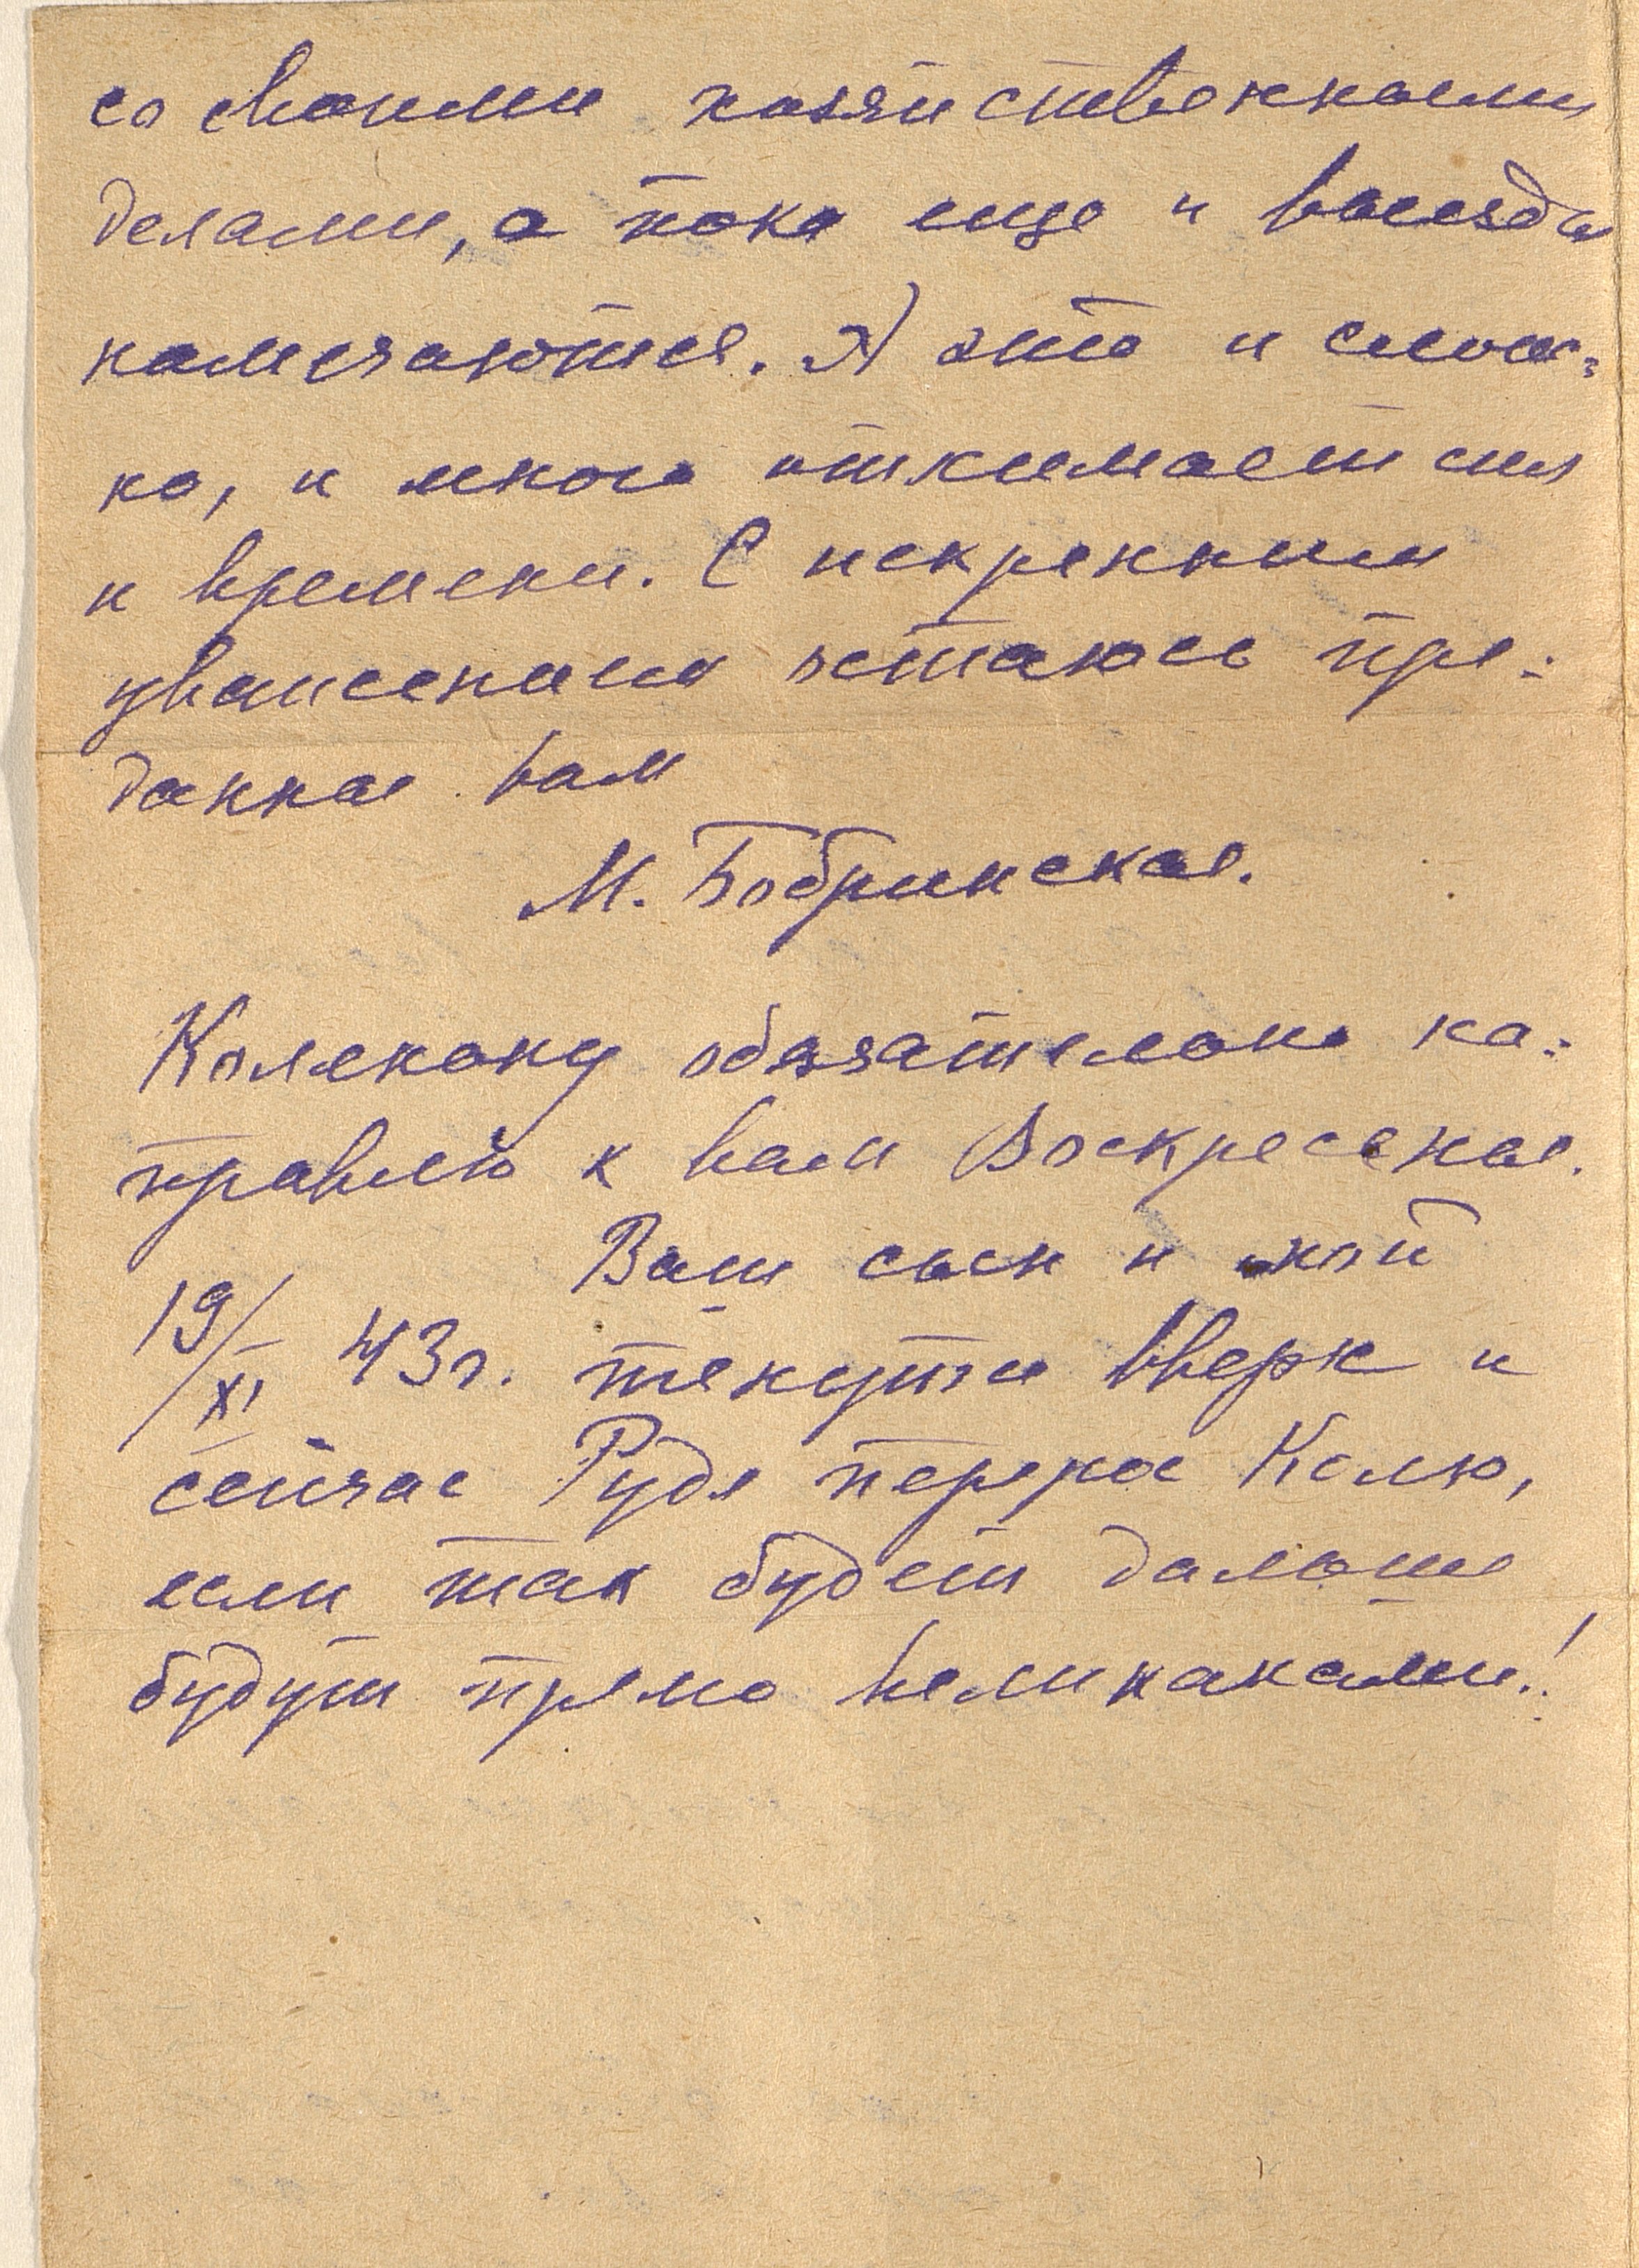 со своими хозяйственными
делами, а пока еще и выезды
намечаются. А это и слож-
но, и много отнимает сил
и времени. С искренним
уважением остаюсь пре-
данная вам
М. Бобринская.
Колякону обязательно на-
правлю к вам Воскресенье.
Ваш сын и мой
19/XI 43 г. тянутся вверх и
сейчас Рудя перерос Колю,
если так будет дальше
будут прямо великанами!